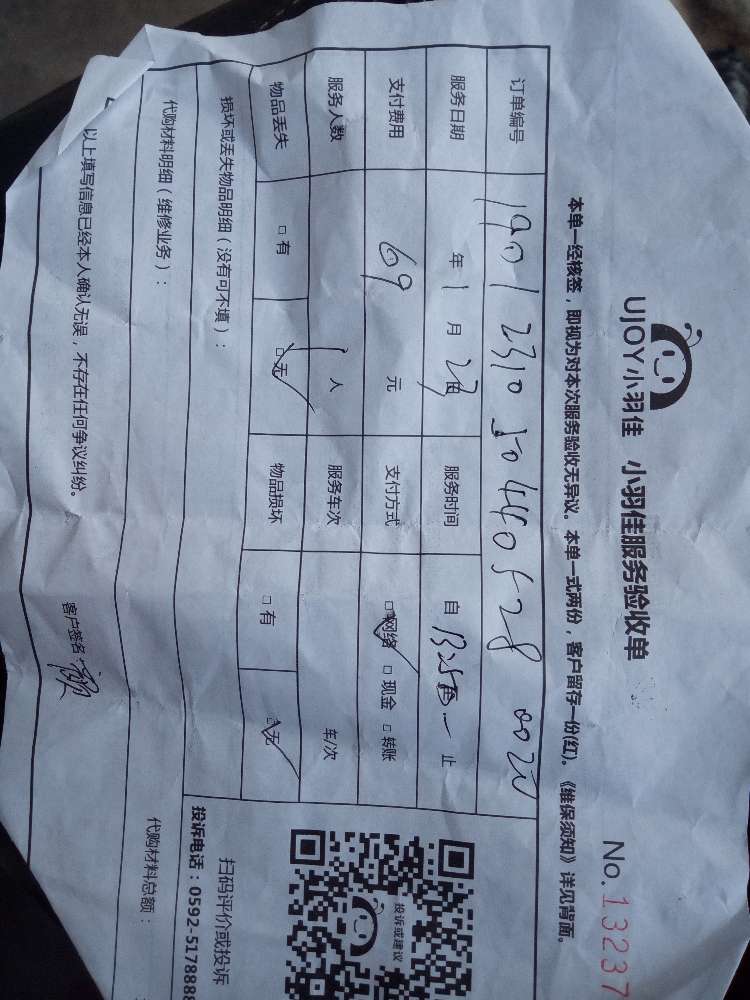 UJOY小羽佳 小羽佳服务验收单
No.13237
本单一经核签，即视为对本次服务验收无异议。本单一式两份，客户留存一份(红)。《维保须知》详见背面。
订单编号
服务日期 年 1 月 23日 服务时间 自 止
支付费用 69 元 支付方式 □网络 □现金 □转账
服务人数 1 人 服务车次 车/次
物品丢失 □有 □无 物品损坏 □有 □无
损坏或丢失物品明细（没有可不填）：
代购材料明细（维修业务）： 代购材料总额：
以上填写信息已经本人确认无误，不存在任何争议纠纷。
客户签名：
投诉或建议
扫码评价或投诉
投诉电话：0592-5178888